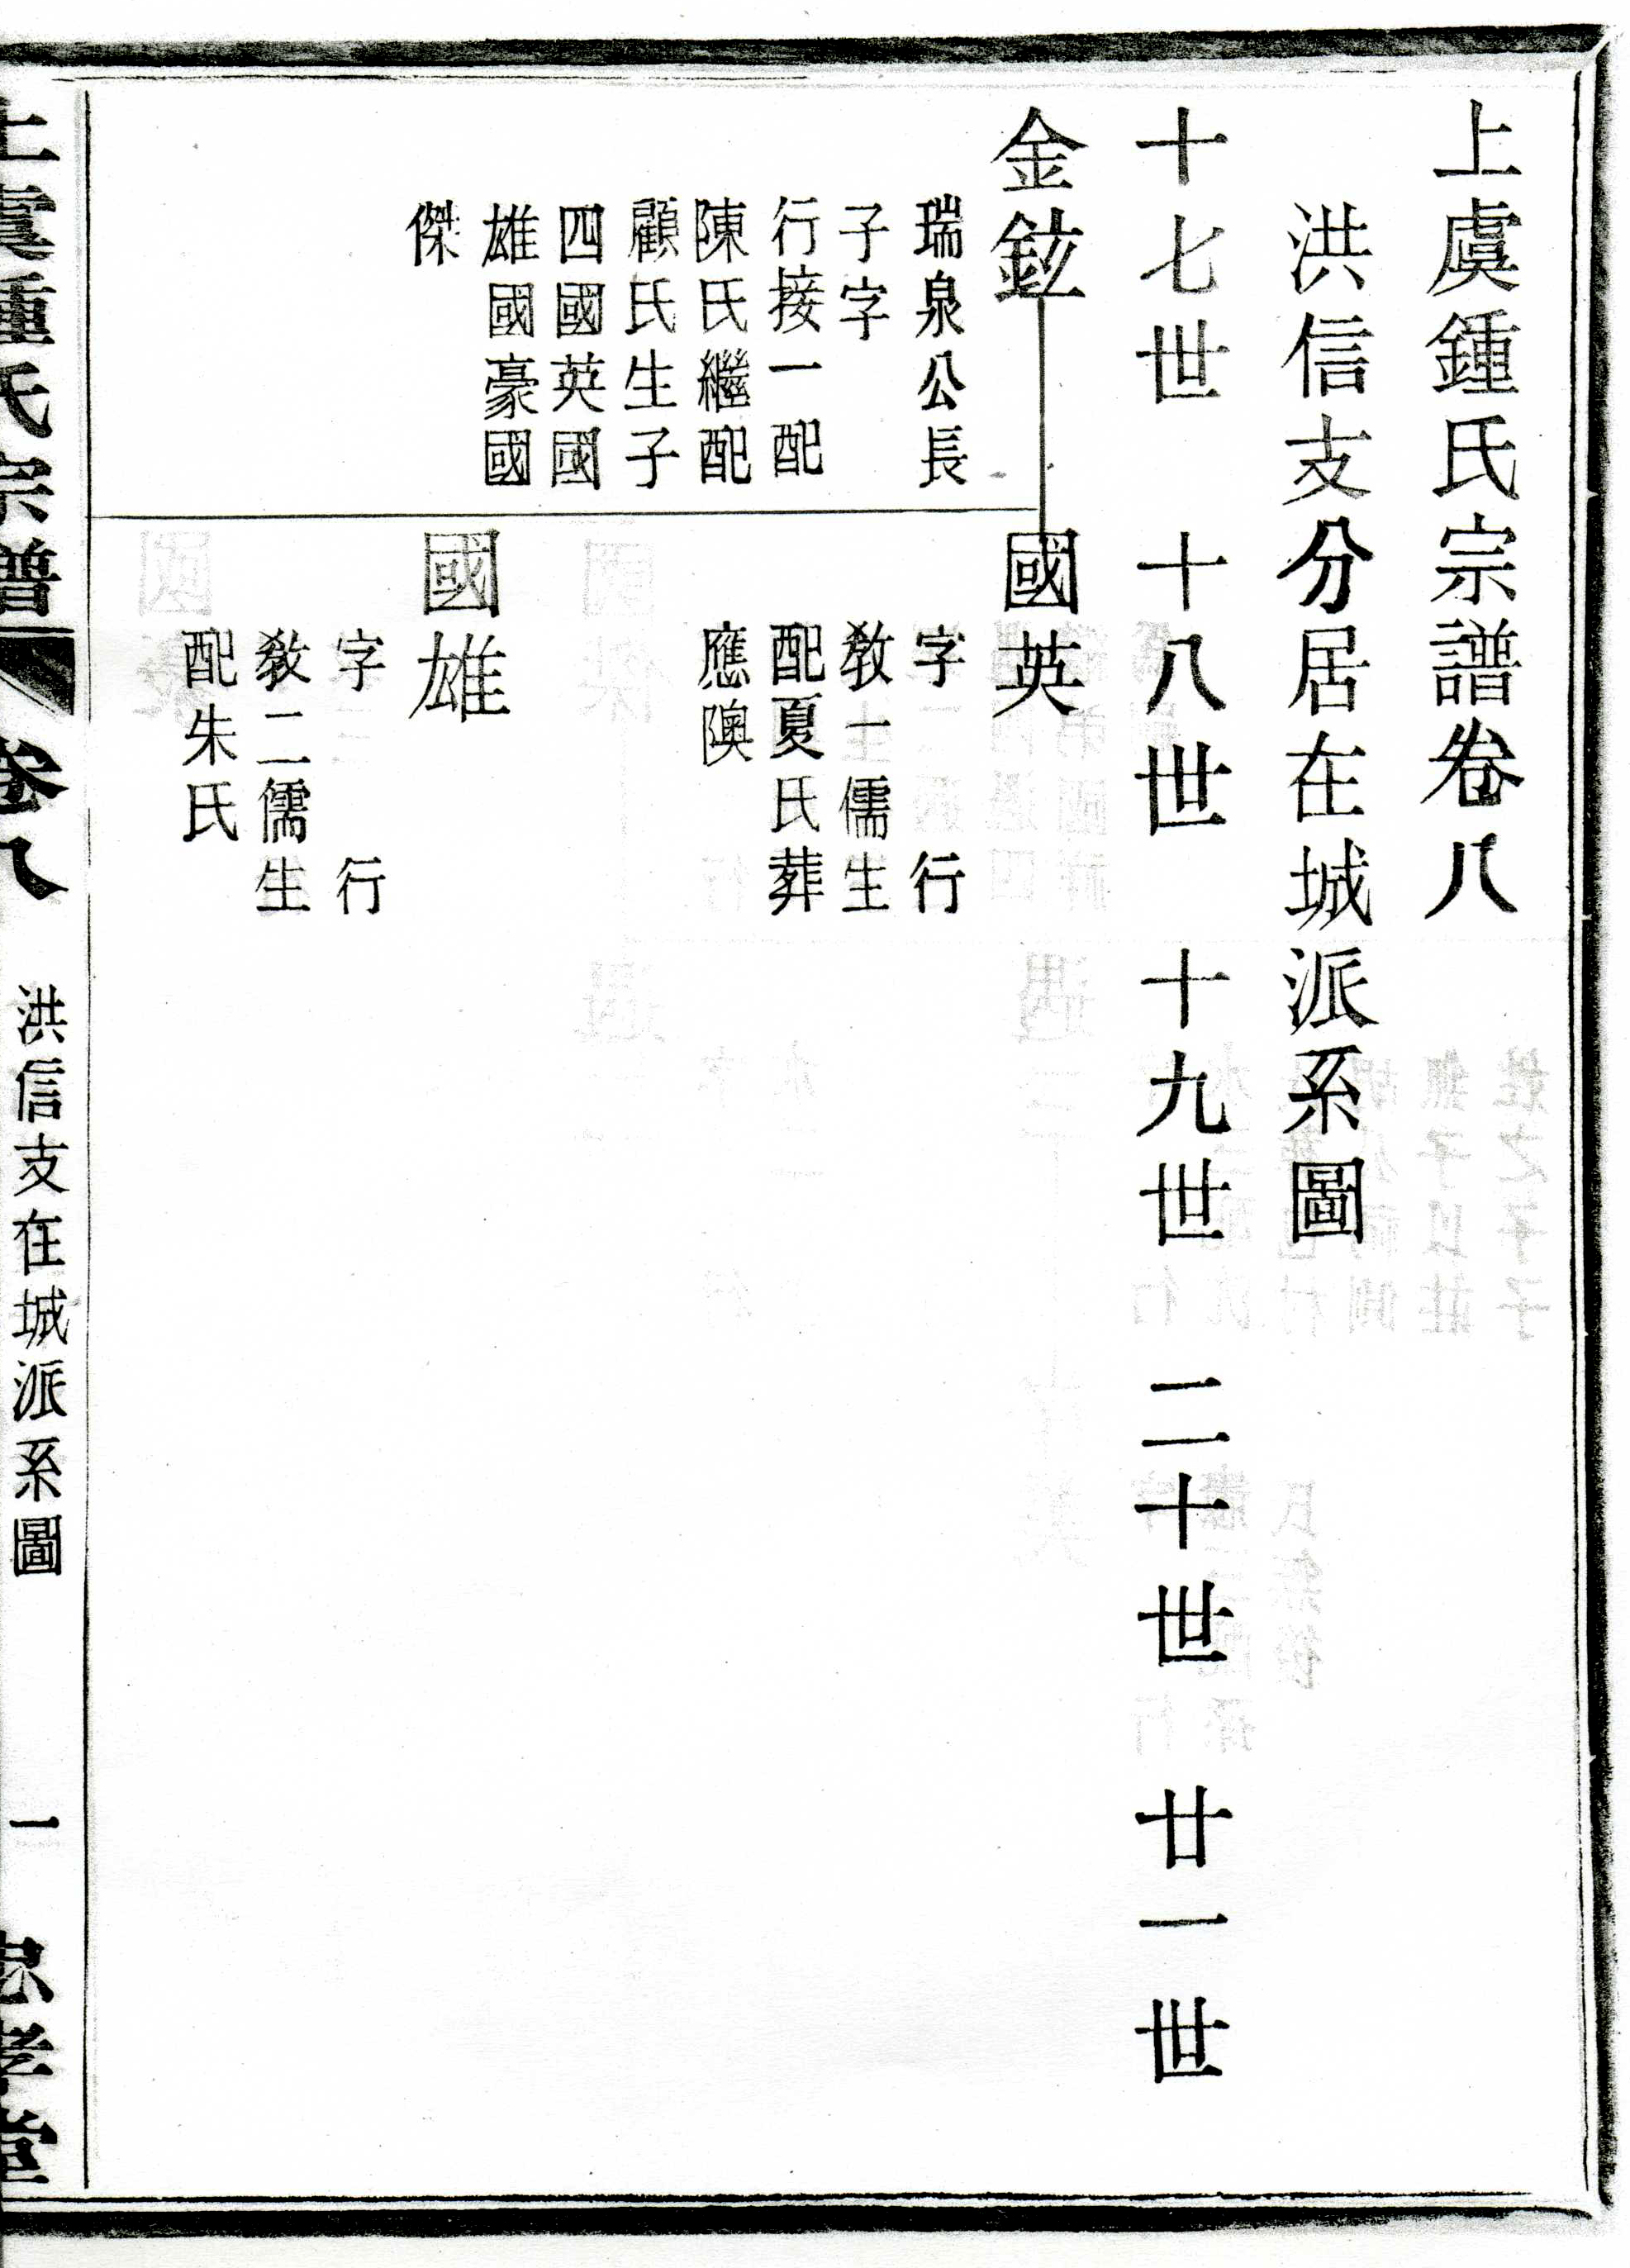 上虞鍾氏宗譜卷八
洪信支分居在城派系圖
十七世 十八世 十九世 二十世 廿一世
金鉉
瑞泉公長
子字
行接一配
陳氏繼配
顧氏生子
四國英國
雄國豪國
傑
國英
字 行
教一儒生
配夏氏葬
應隩
國雄
字 行
教二儒生
配朱氏
上虞鍾氏宗譜 卷八 洪信支在城派系圖 一 忠孝堂